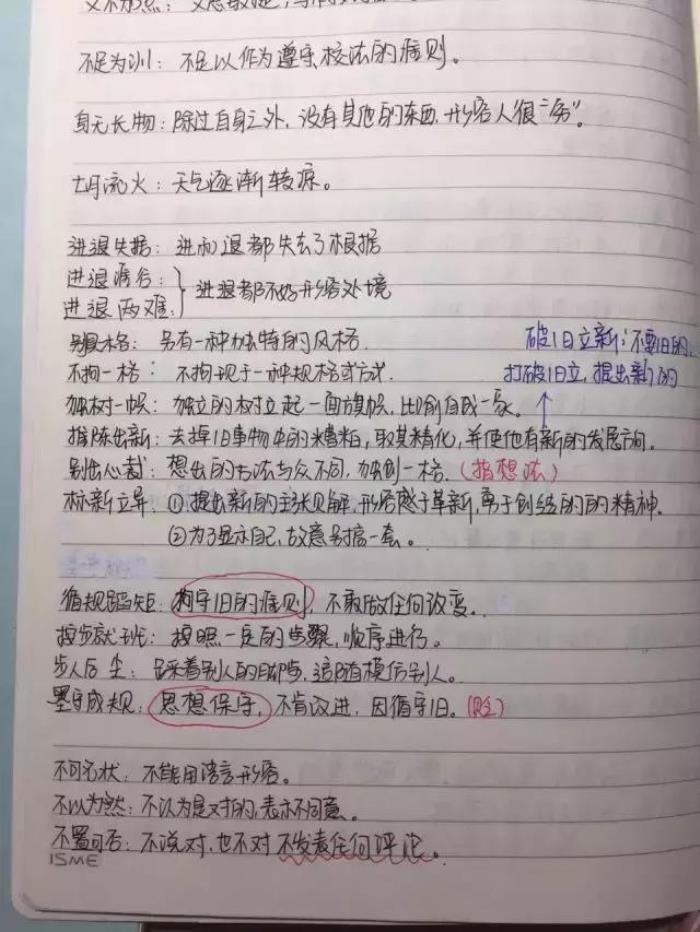 不足为训：不足以作为遵守效法的准则。
身无长物：除过自身之外，没有其他的东西，形容人很“穷”。
七月流火：天气逐渐转凉。
进退失据：进和退都失去了根据
进退维谷：
进退两难：} 进退都不好形容处境
别具一格：另有一种独特的风格。
破旧立新：不要旧的，
不拘一格：不拘现于一种规格或方式．
打破旧立，提出新的
独树一帜：独立的树立起一面旗帜，比喻自成一家。
推陈出新：去掉旧事物中的糟粕，取其精化，并使他有新的发展方向。
别出心裁：想出的方法与众不同，独创一格．（指想法）
标新立异：①提出新的主张见解，形容敢于革新，勇于创结的的精神．
②为了显示自己，故意另搞一套。
循规蹈矩：拘守旧的准则，不敢做任何改变．
按步就班：按照一定的步骤，顺序进行。
步人后尘：踩着别人的脚步，追随模仿别人。
墨守成规：思想保守，不肯改进，因循守旧。（贬）
不可名状：不能用语言形容。
不以为然：不认为是对的，表示不同意。
不置可否：不说对，也不对 不发表任何评论。
ISME